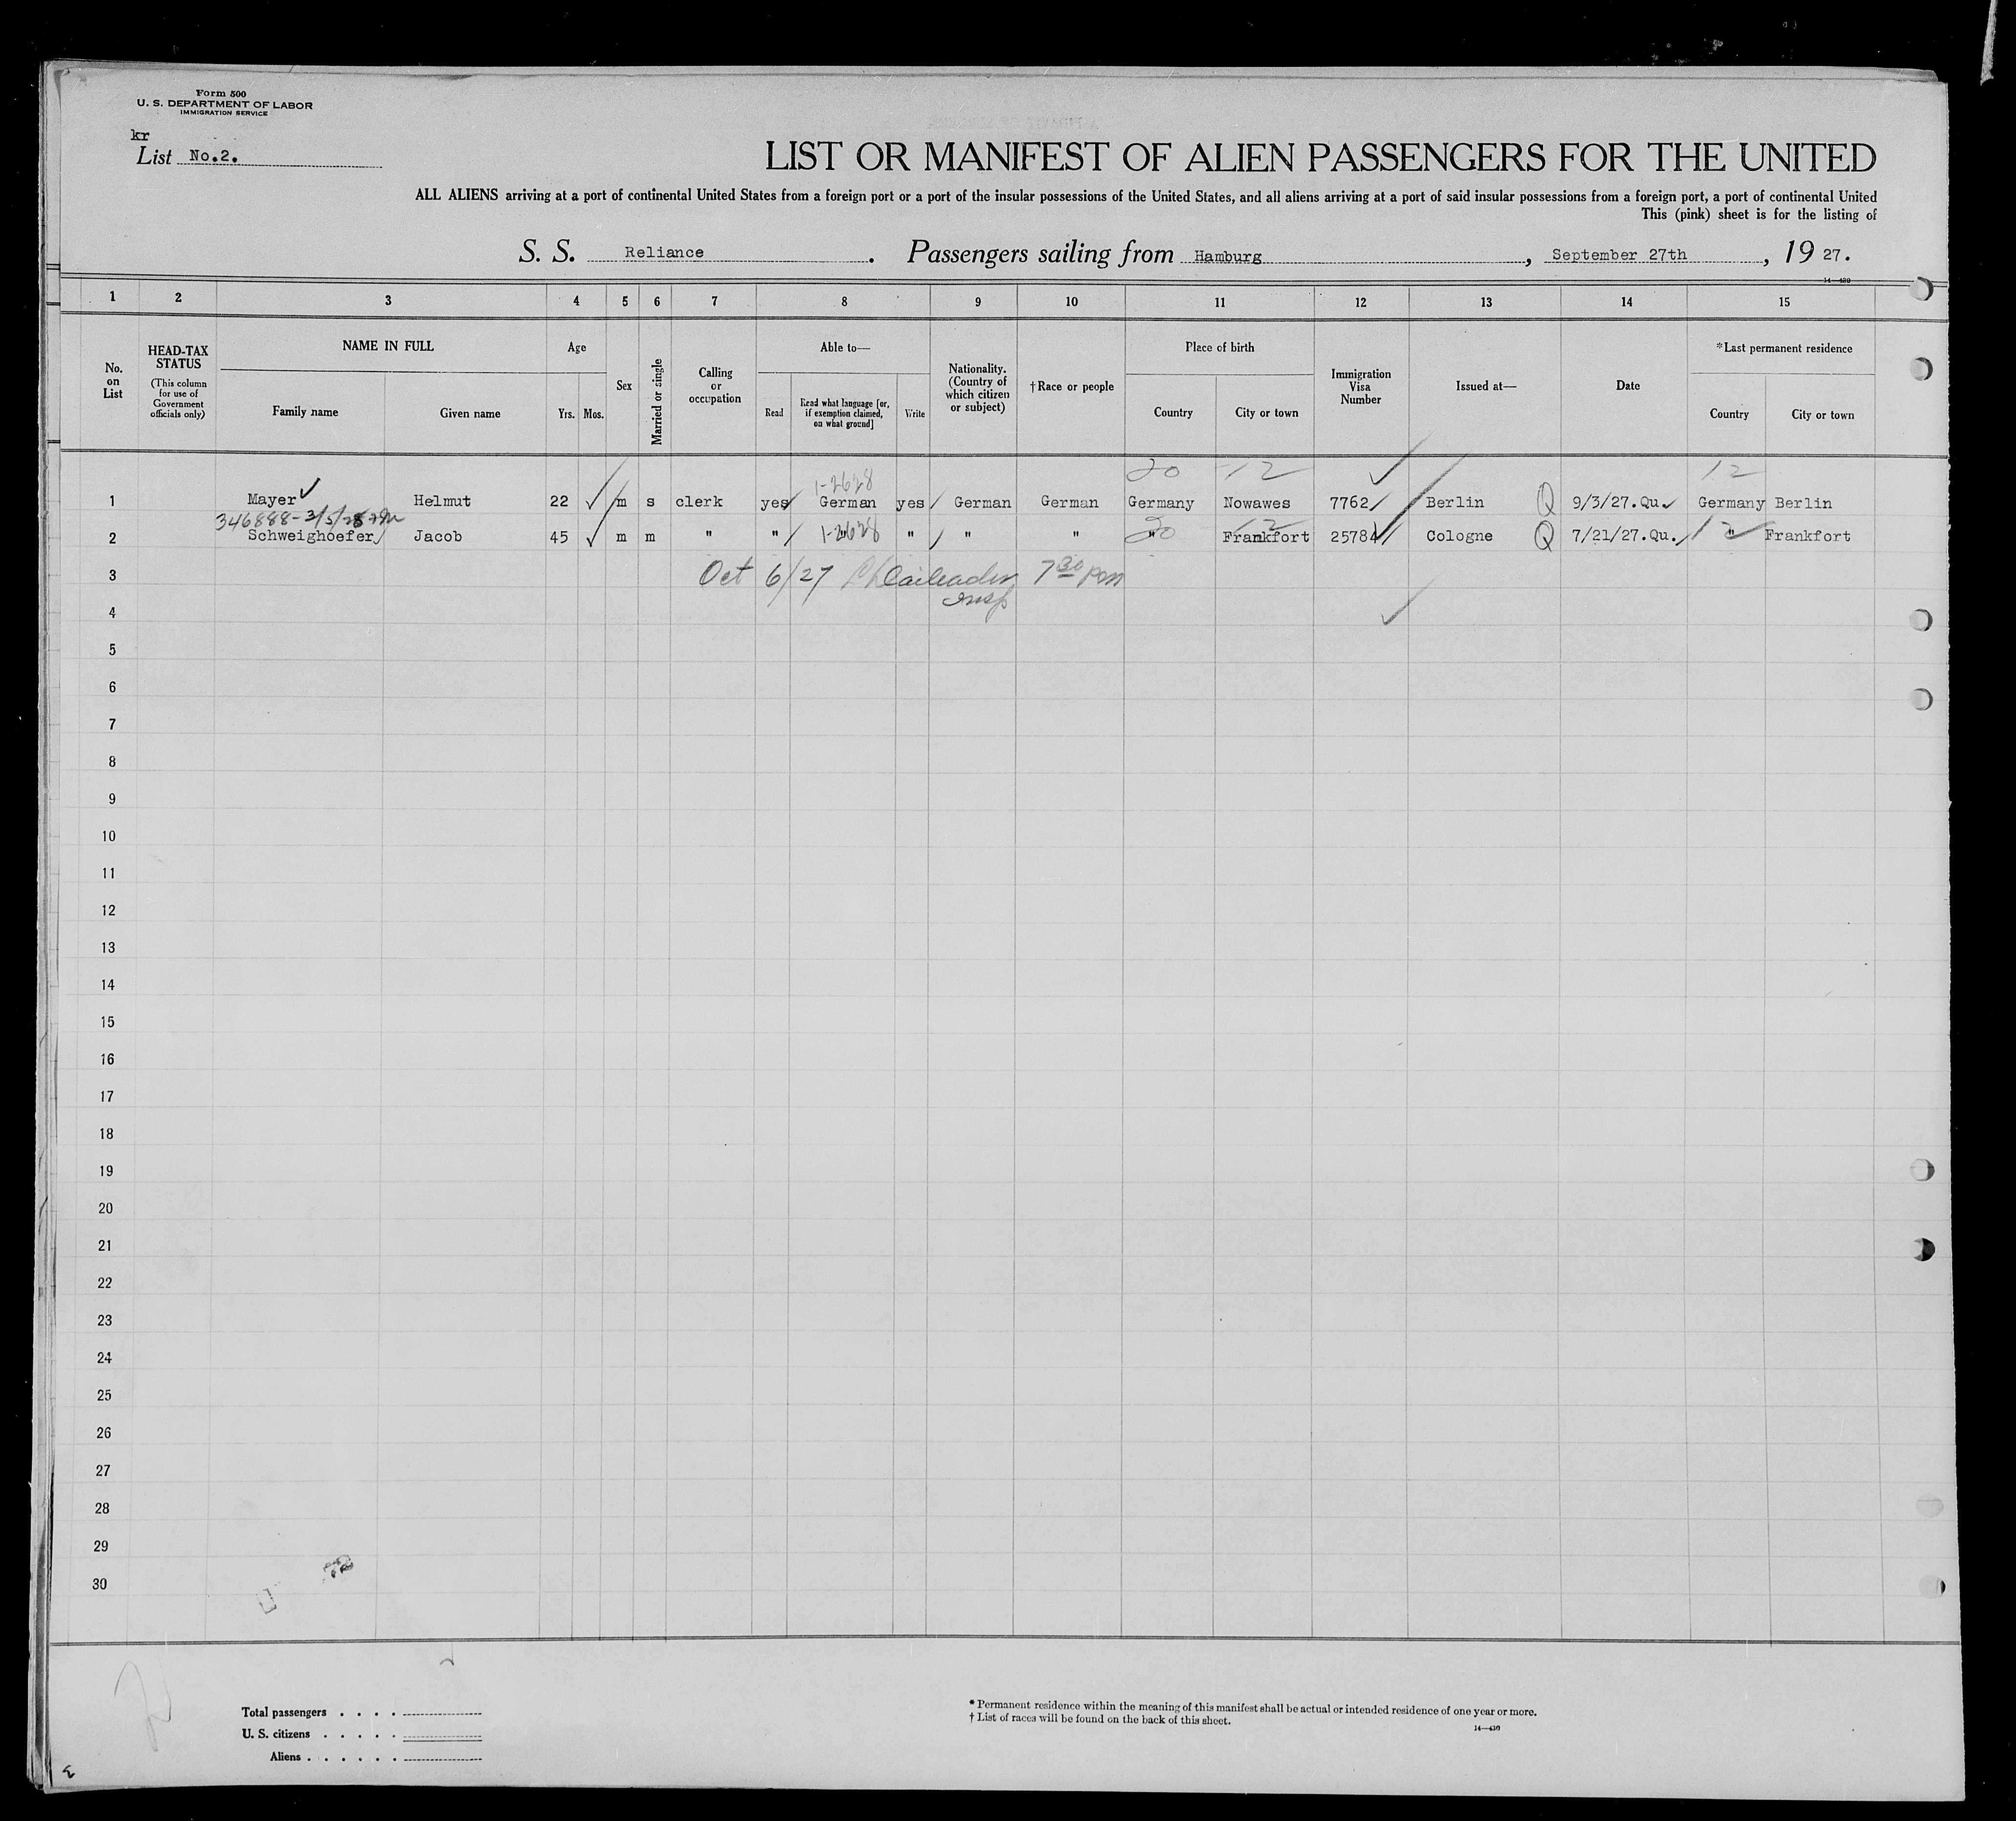 Form 500
U. S. DEPARTMENT OF LABOR
IMMIGRATION SERVICE
kr
List No.2.
LIST OR MANIFEST OF ALIEN PASSENGERS FOR THE UNITED
ALL ALIENS arriving at a port of continental United States from a foreign port or a port of the insular possessions of the United States, and all aliens arriving at a port of said insular possessions from a foreign port, a port of continental United
This (pink) sheet is for the listing of
S. S. Reliance. Passengers sailing from Hamburg, September 27th, 19 27.
14—430
1 2 3 4 5 6 7 8 9 10 11 12 13 14 15
No. on List
HEAD-TAX STATUS
(This column for use of Government officials only)
NAME IN FULL
Family name Given name
Age
Yrs. Mos.
Sex
Married or single
Calling or occupation
Able to—
Read
Read what language [or, if exemption claimed, on what ground]
Write
Nationality. (Country of which citizen or subject)
† Race or people
Place of birth
Country City or town
Immigration Visa Number
Issued at—
Date
*Last permanent residence
Country City or town
1-2628 20 12 12
1 Mayer Helmut 22 m s clerk yes German yes German German Germany Nowawes 7762 Berlin Q 9/3/27.Qu. Germany Berlin
346888-3/5/28
2 Schweighoefer Jacob 45 m m " " 1-2628 " " " " 20 Frankfort 12 25784 Cologne Q 7/21/27.Qu. 12 " Frankfort
3 Oct 6/27 7 30 pm
Insp
4
5
6
7
8
9
10
11
12
13
14
15
16
17
18
19
20
21
22
23
24
25
26
27
28
29
30
Total passengers . . . .
U. S. citizens . . . . .
Aliens . . . . . .
* Permanent residence within the meaning of this manifest shall be actual or intended residence of one year or more.
† List of races will be found on the back of this sheet.
14—430